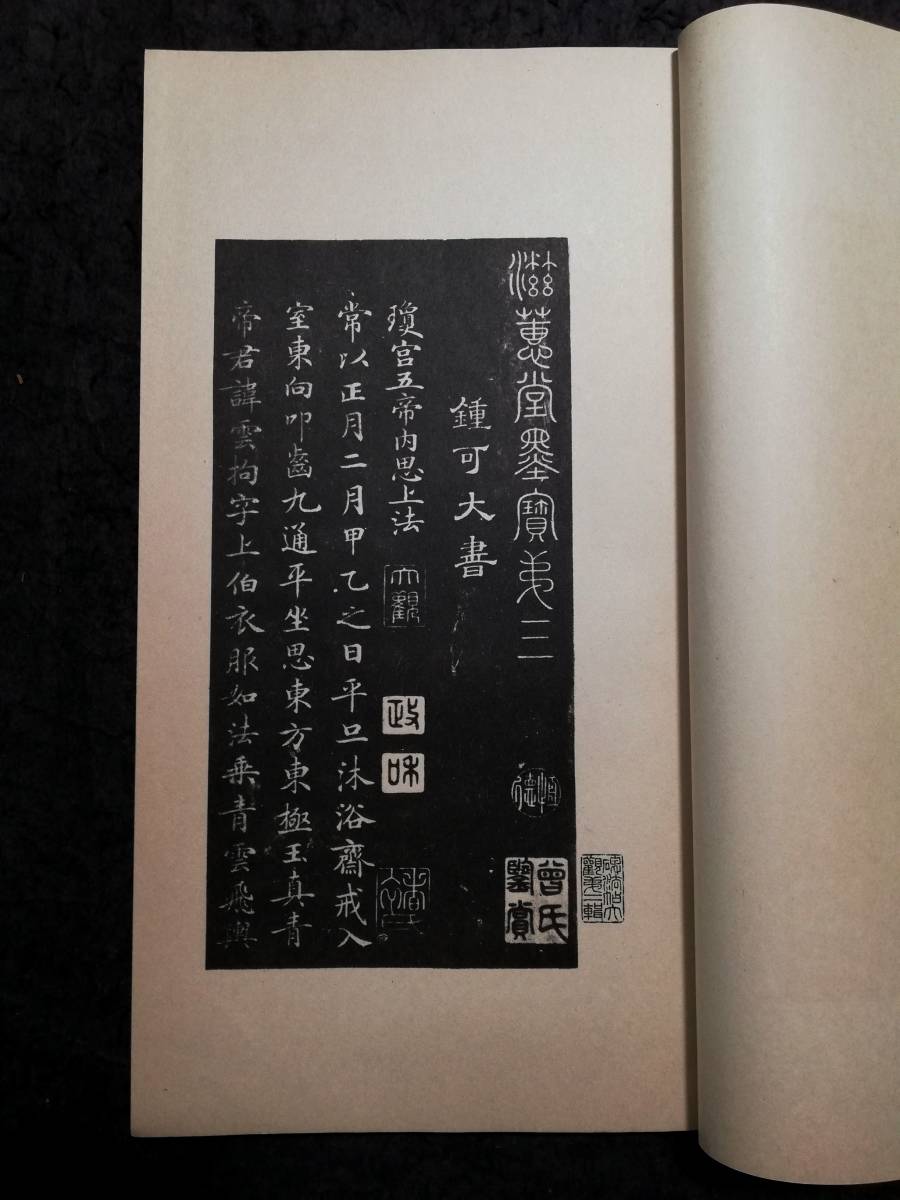 滋蕙堂墨寶弟三
鍾可大書
瓊宮五帝內思上法
常以正月二月甲乙之日平旦沐浴齋戒入
室東向叩齒九通平坐思東方東極玉真青
帝君諱雲拘字上伯衣服如法乗青雲飛輿
大觀
政和
恒德
曾氏鑒賞